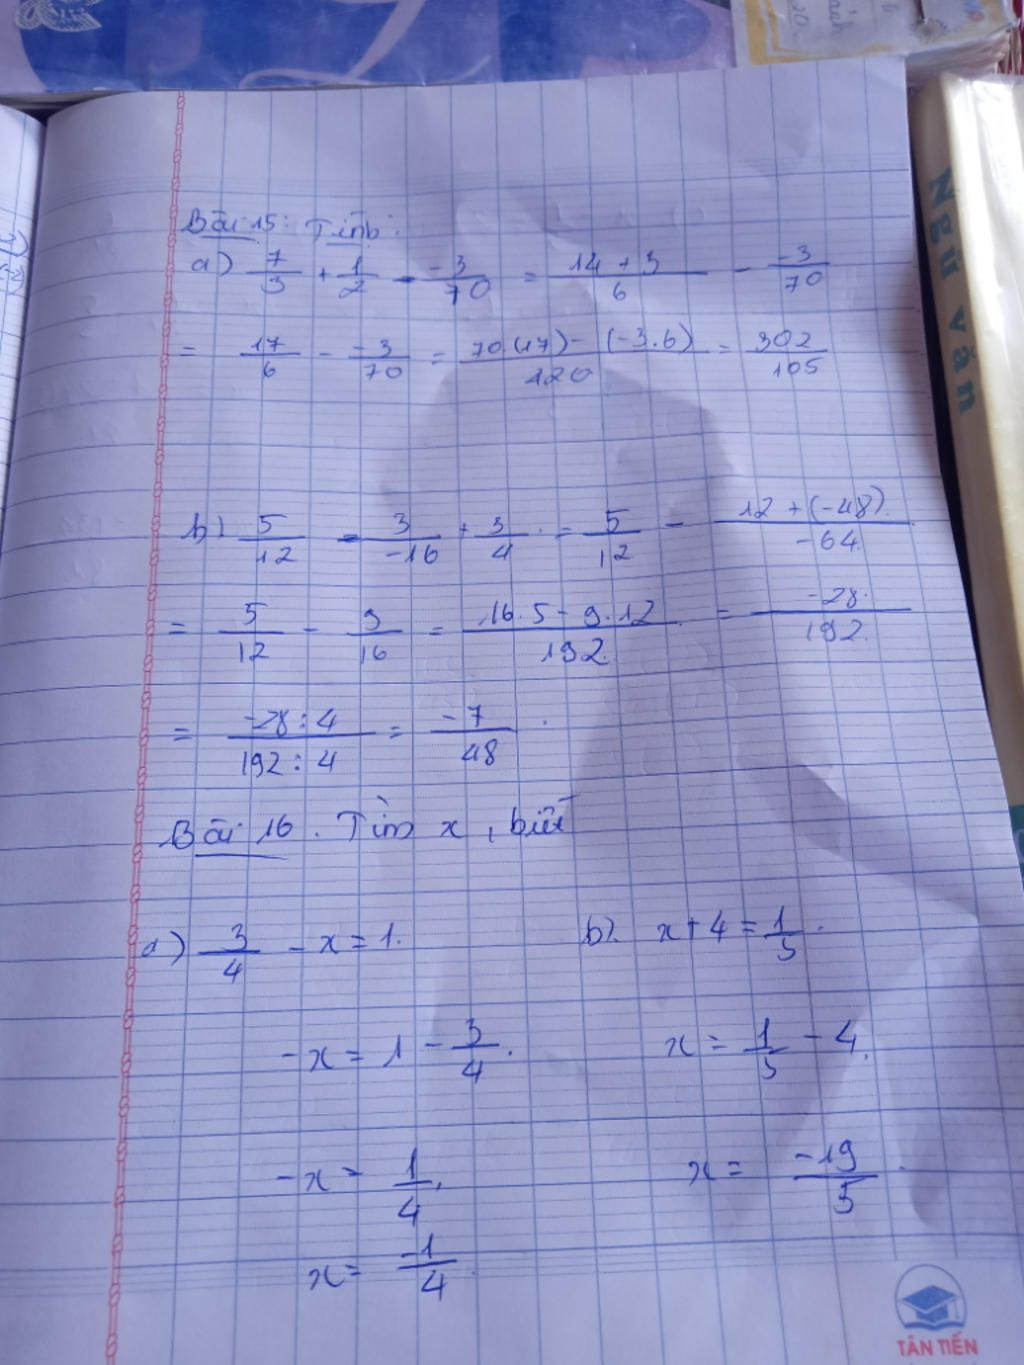 Bài 15: Tính:
a) 7/3 + 1/2 - -3/70 = 14 + 3/6 - -3/70
= 17/6 - -3/70 = 70.(17) - (-3.6)/420 = 302/105
b) 5/12 - 3/-16 + 3/4 = 5/12 - 12 + (-48)/-64
= 5/12 - 9/16 = 16.5 - 9.12/192 = -28/192
= -28:4/192:4 = -7/48
Bài 16. Tìm x, biết
a) 3/4 - x = 1. b) x + 4 = 1/5.
-x = 1 - 3/4. x = 1/5 - 4.
-x = 1/4. x = -19/5
x = -1/4.
Ngữ văn
TÂN TIẾN